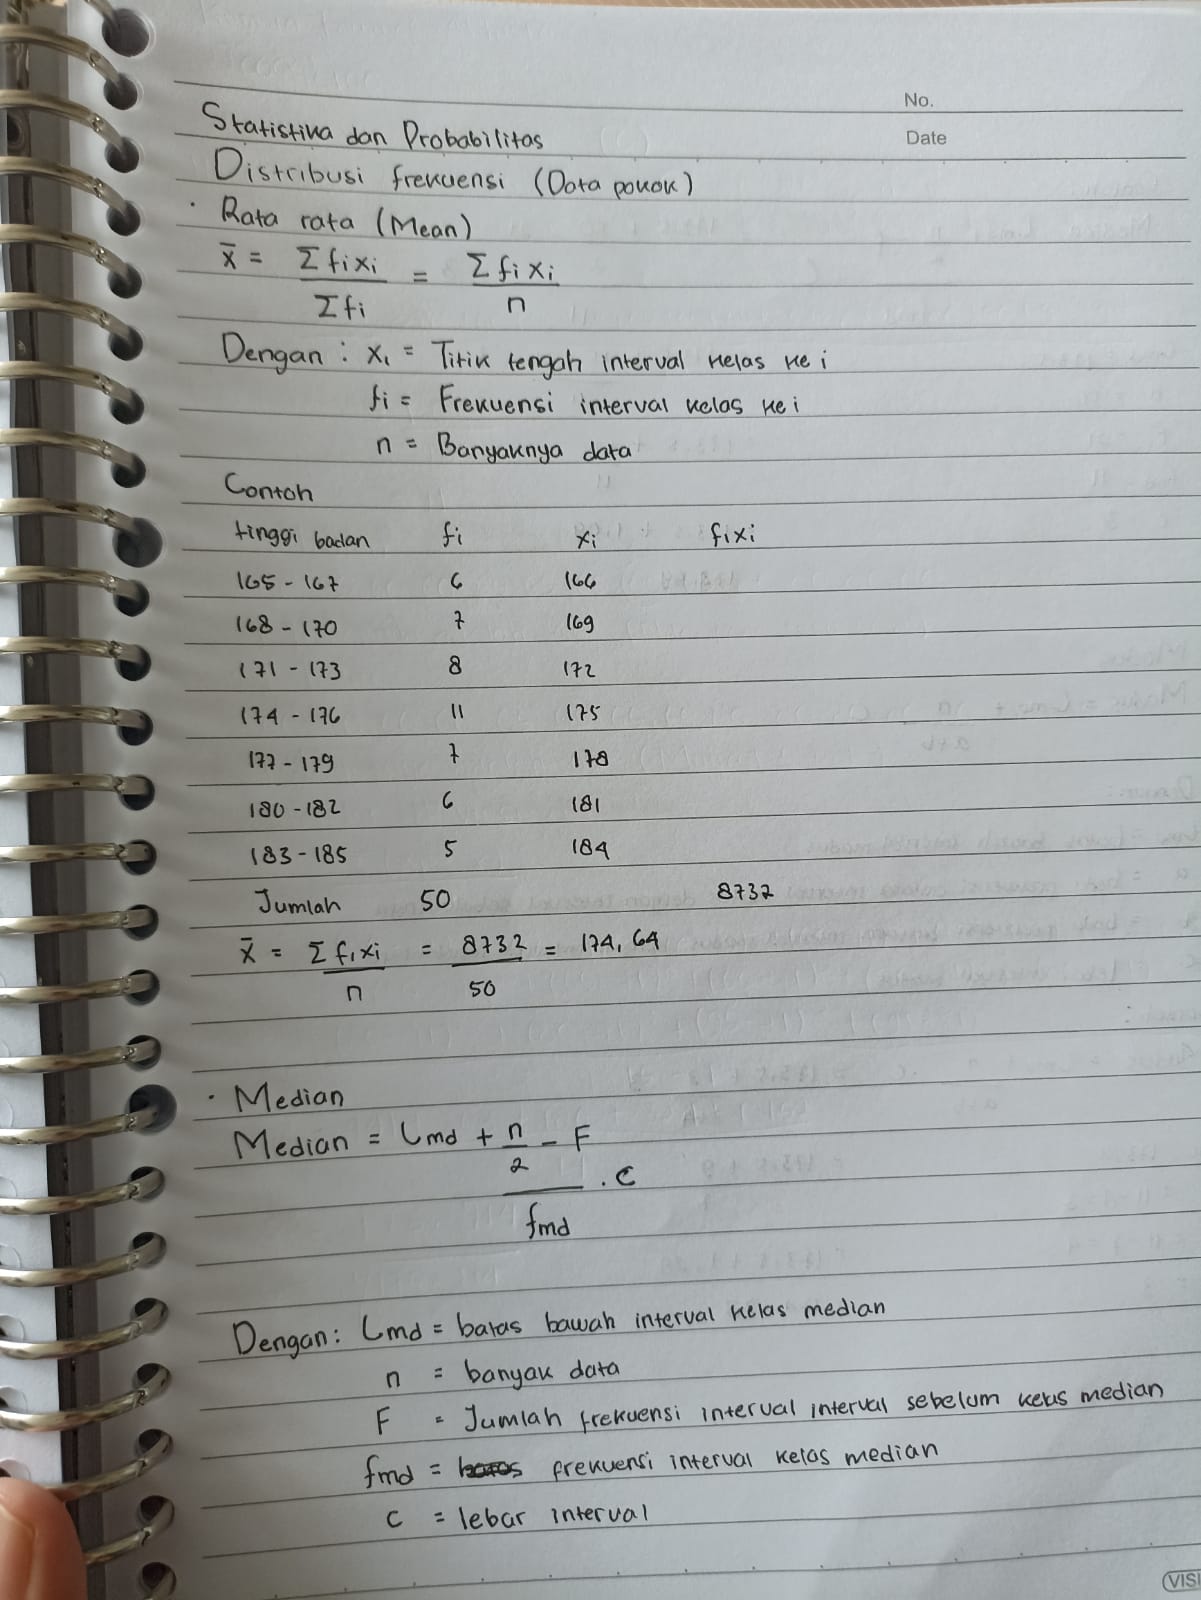 No.
Date
Statistika dan Probabilitas
Distribusi frekuensi (Data pokok)
· Rata rata (Mean)
x̄ = Σ fixi / Σ fi = Σ fixi / n
Dengan : xi = Titik tengah interval kelas ke i
fi = Frekuensi interval kelas ke i
n = Banyaknya data
Contoh
tinggi badan fi xi fixi
165 - 167 6 166
168 - 170 7 169
171 - 173 8 172
174 - 176 11 175
177 - 179 7 178
180 - 182 6 181
183 - 185 5 184
Jumlah 50 8732
x̄ = Σ fixi / n = 8732 / 50 = 174,64
· Median
Median = Lmd + n/2 - F / fmd . C
Dengan: Lmd = batas bawah interval kelas median
n = banyak data
F = Jumlah frekuensi interval interval sebelum kelas median
fmd = frekuensi interval kelas median
C = lebar interval